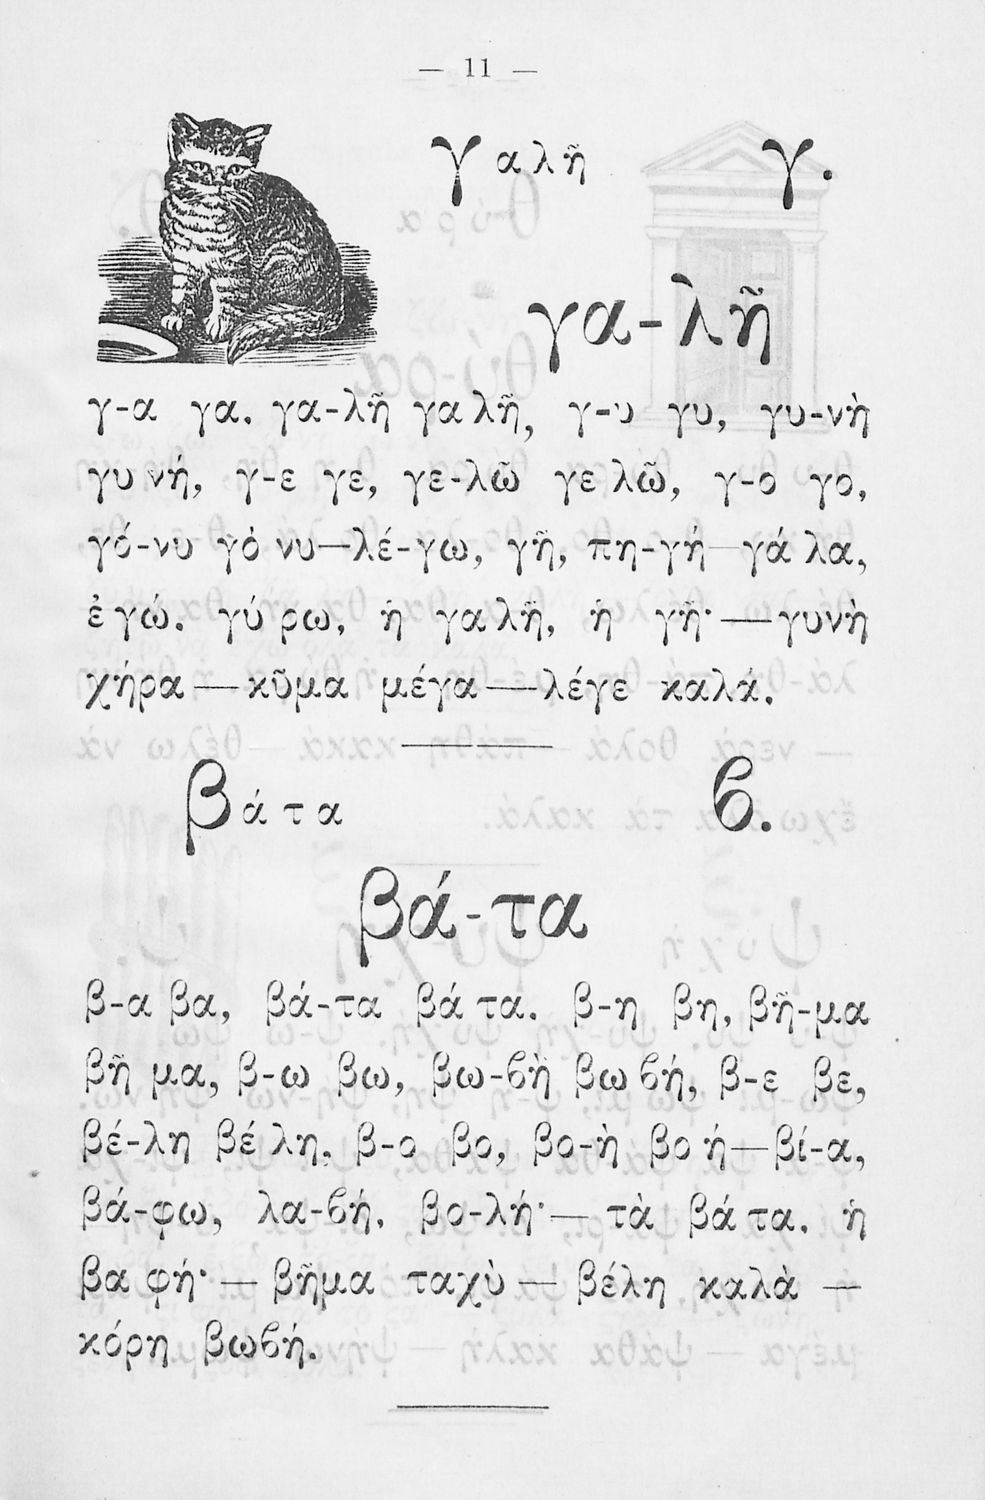 — 11 —
γαλῆ γ.
γα-λῆ
γ-α γα. γα-λῆ γα λῆ, γ-υ γυ, γυ-νὴ
γυ νή, γ-ε γε, γε-λῶ γε λῶ, γ-ο γο,
γό-νυ γό νυ—λέ-γω, γῆ, πη-γή—γά λα,
ἐγώ. γύρω, ἡ γαλῆ, ἡ γῆ·—γυνὴ
χήρα—κῦμα μέγα—λέγε καλά.
βάτα ϐ.
βά-τα
β-α βα, βά-τα βά τα. β-η βη, βῆ-μα
βῆ μα, β-ω βω, βω-ϐὴ βω ϐή, β-ε βε,
βέ-λη βέ λη, β-ο βο, βο-ὴ βο ή—βί-α,
βά-φω, λα-ϐή. βο-λή·—τὰ βά τα. ἡ
βα φή·—βῆμα ταχὺ—βέλη καλὰ—
κόρη βωϐή.